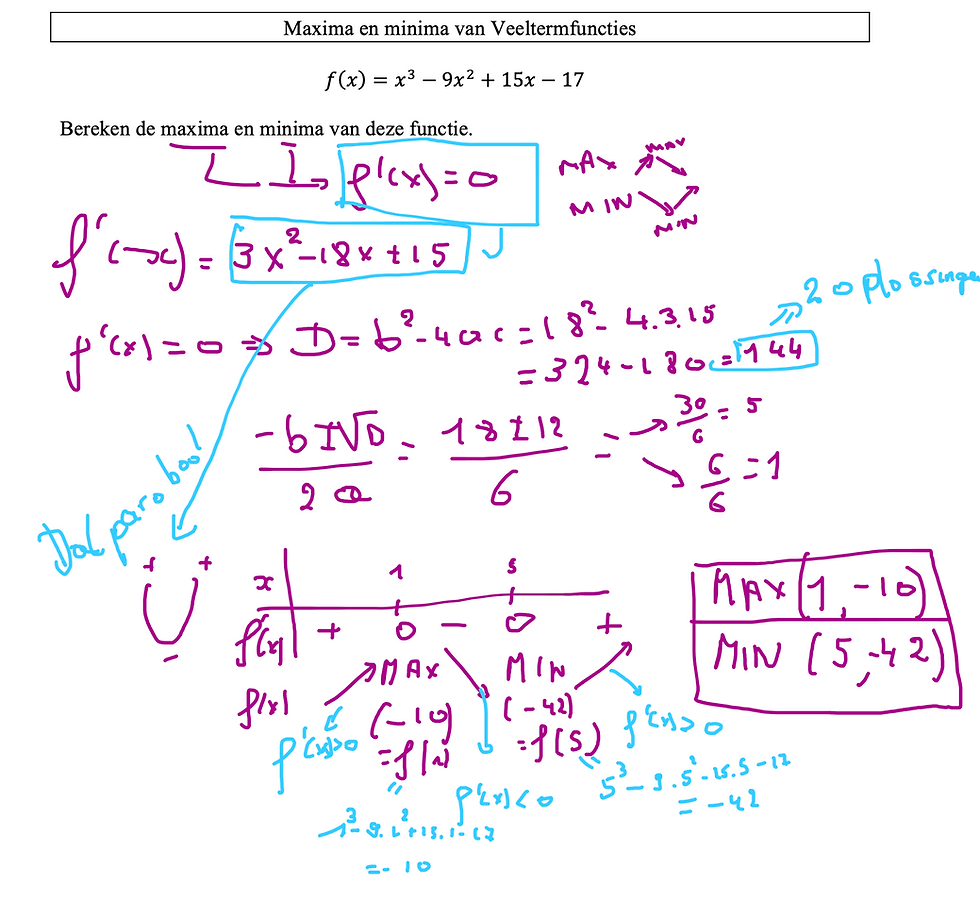 Maxima en minima van Veeltermfuncties
f(x) = x³ − 9x² + 15x − 17
Bereken de maxima en minima van deze functie.
f'(x) = 0
MAX MAX
MIN MIN
f'(x) = 3x² - 18x + 15
2 oplossingen
f'(x) = 0 ⇒ D = b² - 4ac = 18² - 4.3.15
= 324 - 180 = 144
-b ± √D / 2a = 18 ± 12 / 6 = 30/6 = 5
6/6 = 1
Dal parabool
+ +
-
x 1 5
f'(x) + 0 - 0 +
f(x) MAX MIN
(-10) (-42)
= f(1) = f(5)
f'(x)>0 f'(x)<0 f'(x)>0
1³ - 9.1² + 15.1 - 17
= -10
5³ - 9.5² - 15.5 - 17
= -42
MAX (1, -10)
MIN (5, -42)